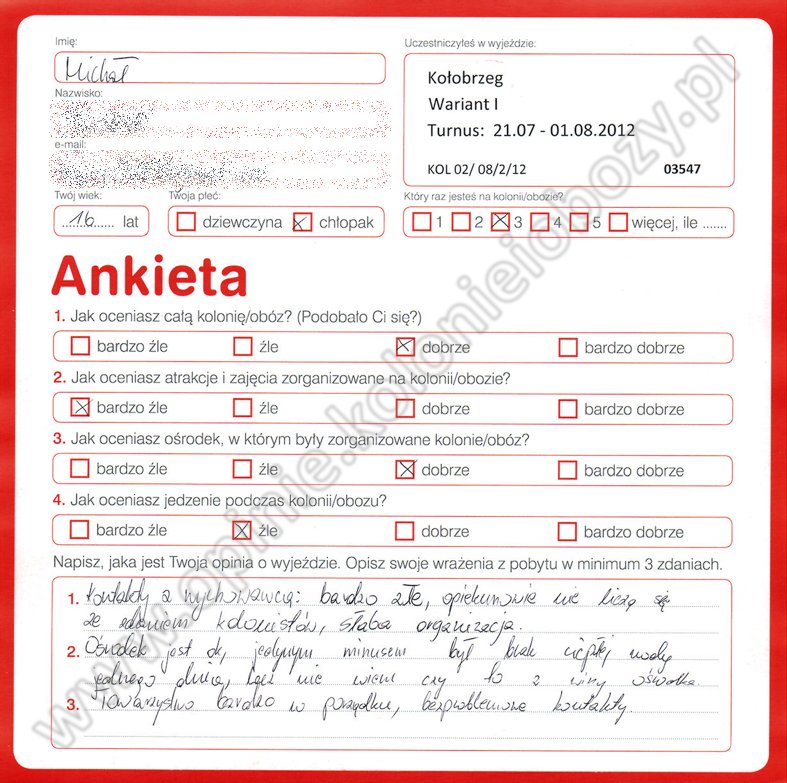 Imię:
Michał
Uczestniczyłeś w wyjeździe:
Kołobrzeg
Wariant I
Turnus: 21.07 - 01.08.2012
KOL 02/ 08/2/12 03547
Nazwisko:
e-mail:
Twój wiek:
16 lat
Twoja płeć:
dziewczyna chłopak
Który raz jesteś na kolonii/obozie?
1 2 3 4 5 więcej, ile .......
Ankieta
1. Jak oceniasz całą kolonię/obóz? (Podobało Ci się?)
bardzo źle źle dobrze bardzo dobrze
2. Jak oceniasz atrakcje i zajęcia zorganizowane na kolonii/obozie?
bardzo źle źle dobrze bardzo dobrze
3. Jak oceniasz ośrodek, w którym były zorganizowane kolonie/obóz?
bardzo źle źle dobrze bardzo dobrze
4. Jak oceniasz jedzenie podczas kolonii/obozu?
bardzo źle źle dobrze bardzo dobrze
Napisz, jaka jest Twoja opinia o wyjeździe. Opisz swoje wrażenia z pobytu w minimum 3 zdaniach.
1. Kontakty z wychowawcą: bardzo złe, opiekunowie nie liczą się
ze zdaniem kolonistów, słaba organizacja.
2. Ośrodek jest ok, jedynym minusem był brak ciepłej wody
jednego dnia, lecz nie wiem czy to z winy ośrodka.
3. Towarzystwo bardzo w porządku, bezproblemowe kontakty.
www.opinie.kolonieiobozy.pl